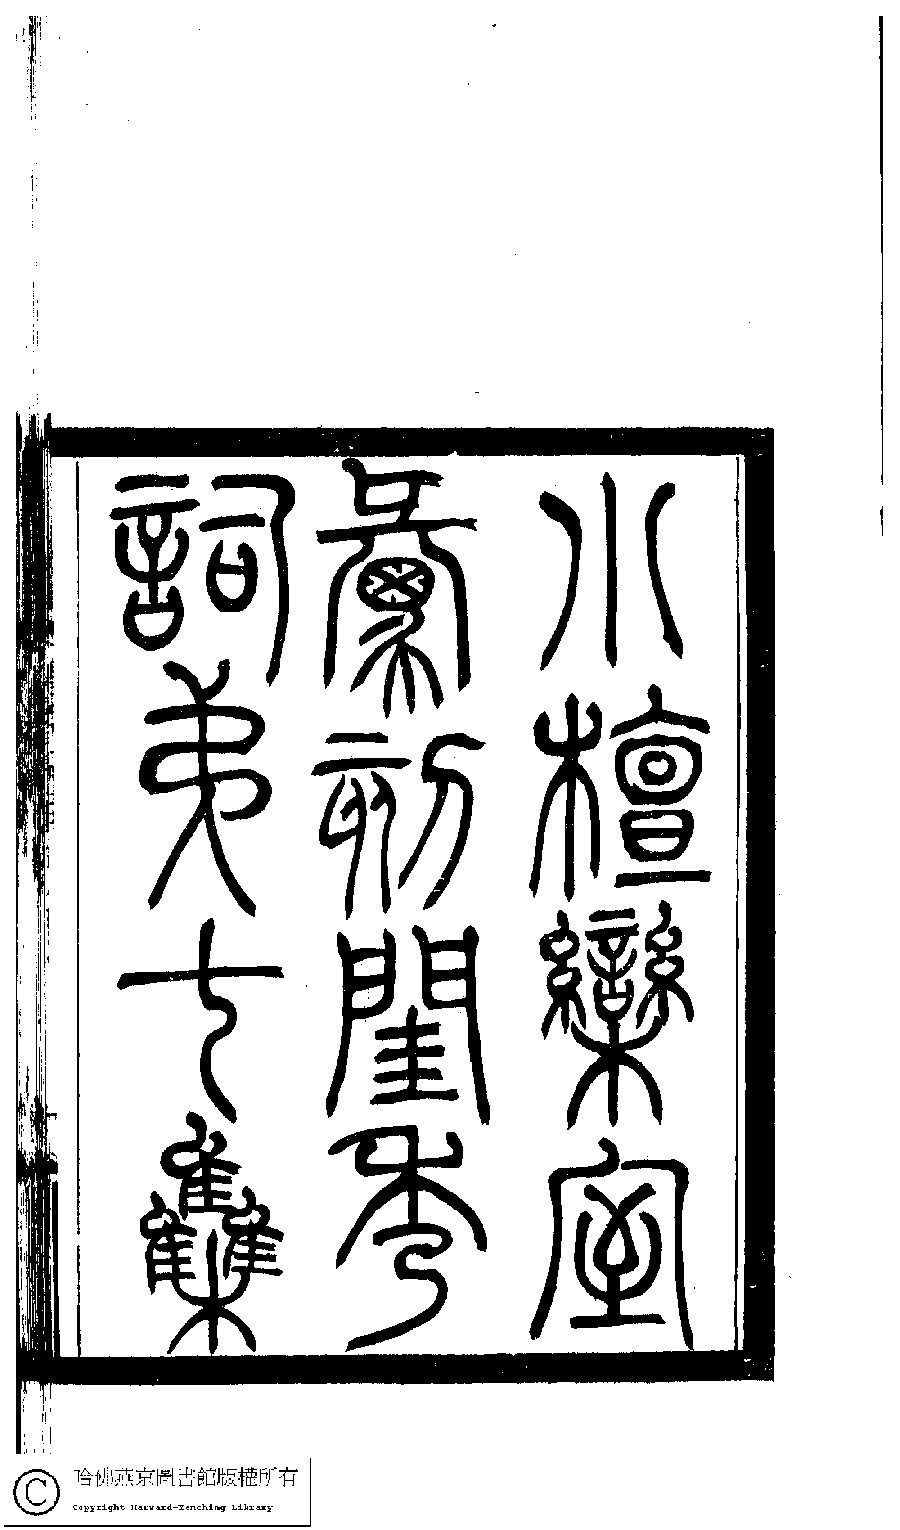 小檀欒室
彙刻閨秀
詞弟七集
哈佛燕京圖書館版權所有
Copyright Harvard-Yenching Library